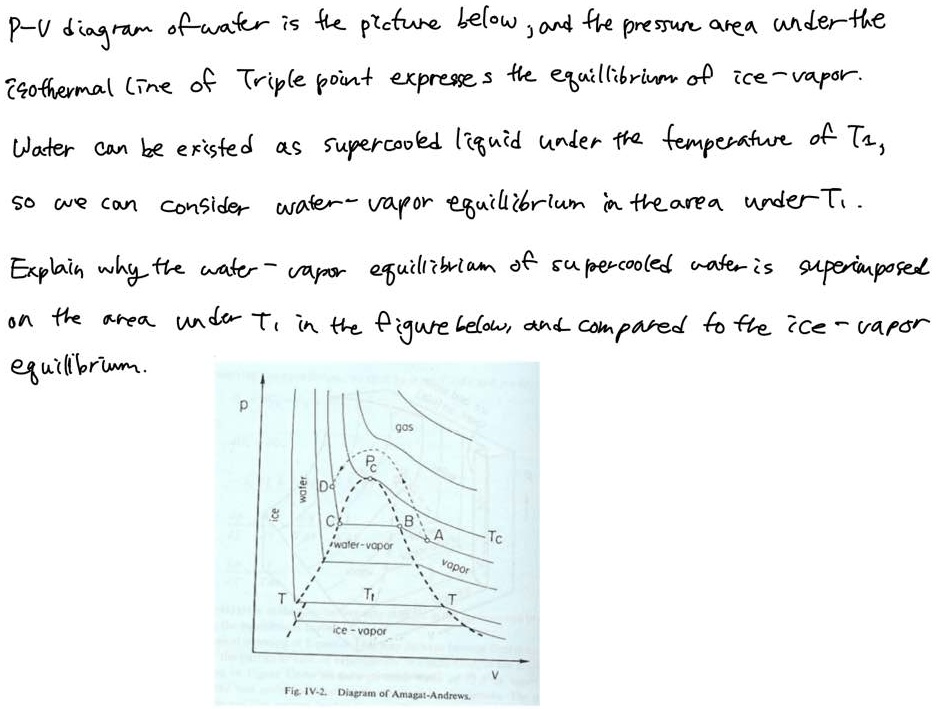 P-V diagram of water is the picture below, and the pressure area under the
isothermal line of Triple point expresses the equillibrium of ice-vapor.
Water can be existed as supercooled liquid under the temperature of T1,
so we can consider water-vapor equilibrium in the area under T1.
Explain why the water-vapor equillibriam of supercooled water is superimposed
on the area under T1 in the figure below, and compared to the ice-vapor
equillibrium.
P
gas
Pc
D
water
ice
C
B
A
Tc
water-vapor
vapor
T
Tt
T
ice-vapor
V
Fig. IV-2. Diagram of Amagat-Andrews.